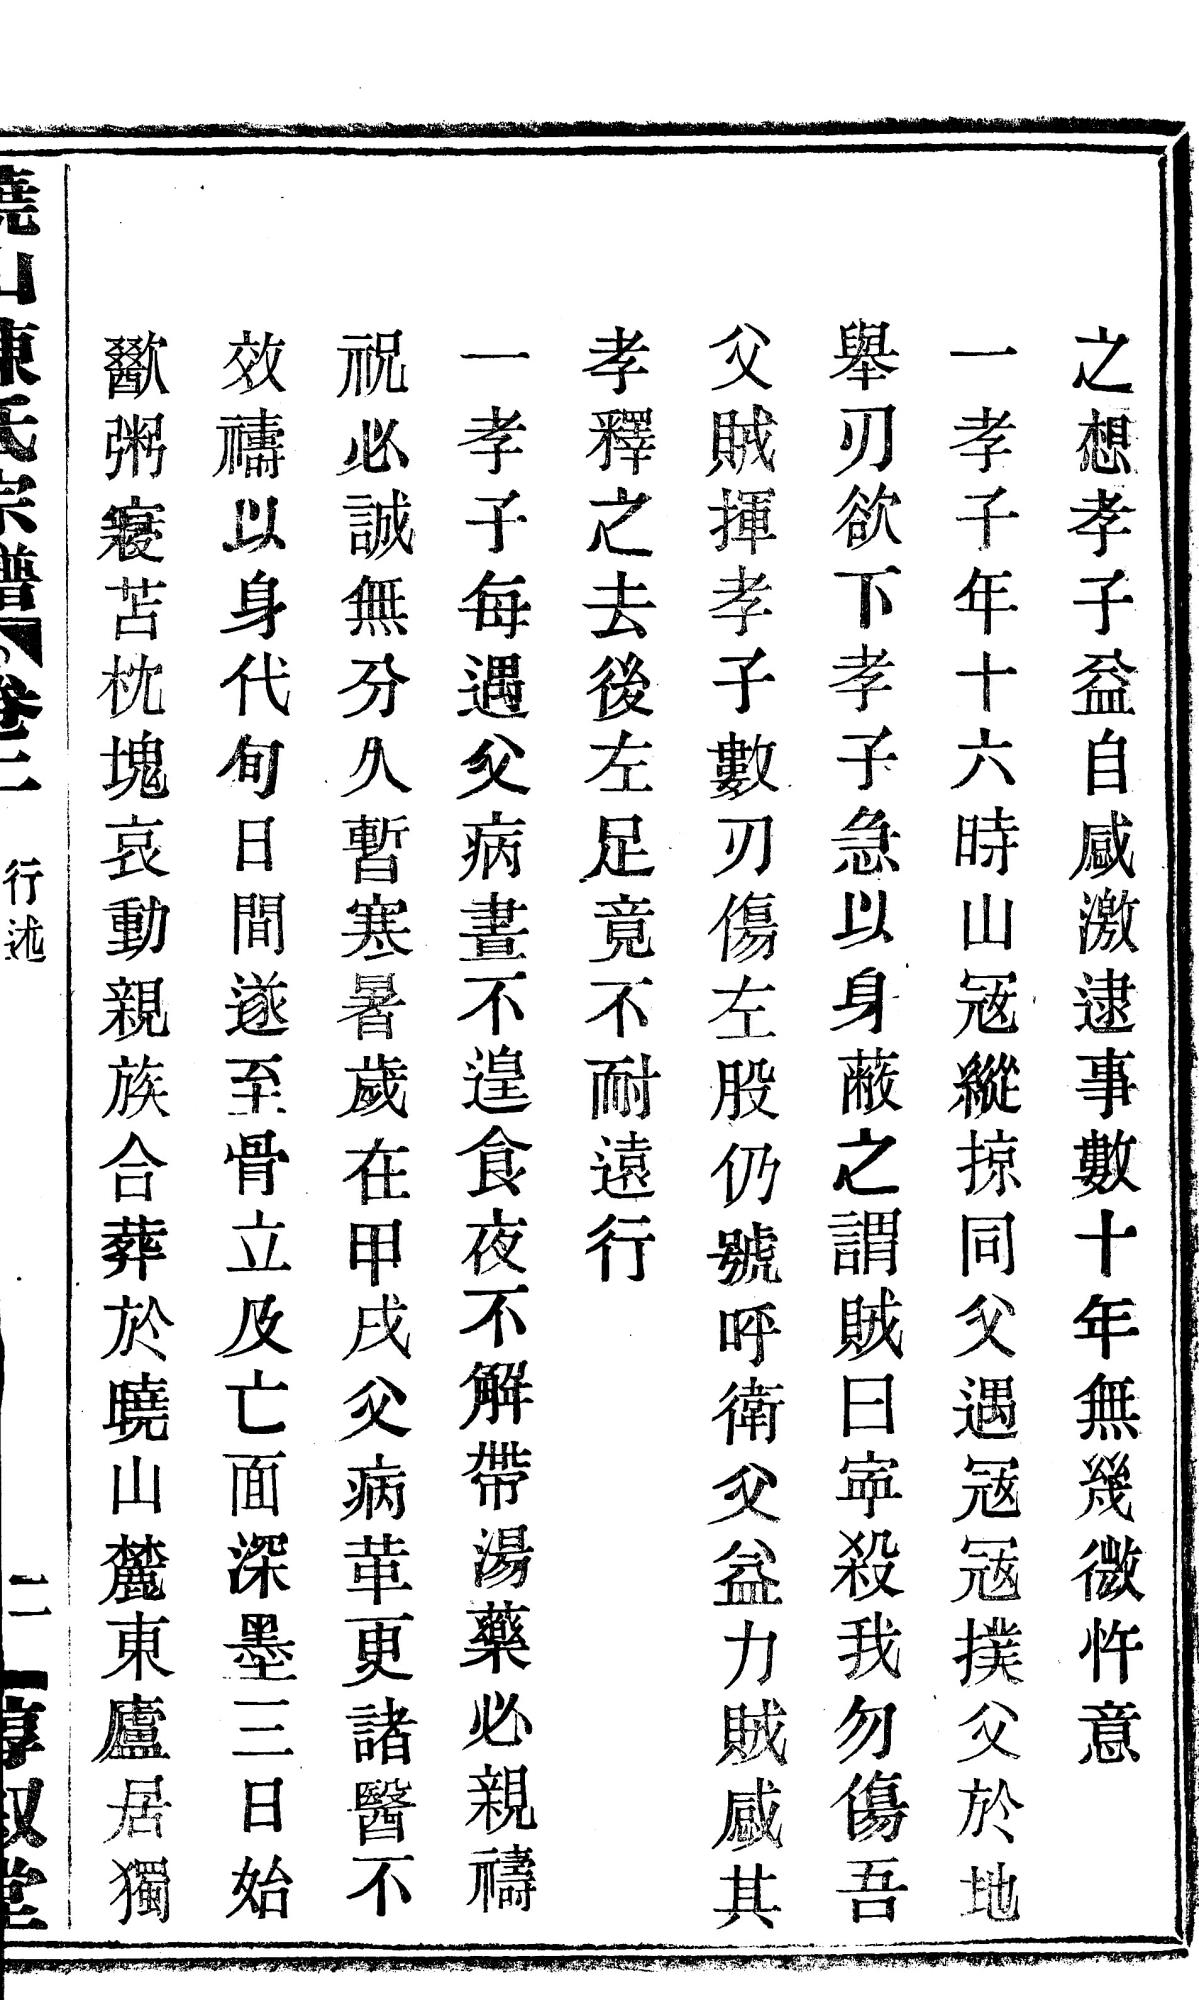 之想孝子益自感激逮事數十年無幾微忤意
一孝子年十六時山冦縱掠同父遇冦冦撲父於地
舉刃欲下孝子急以身蔽之謂賊曰寕殺我勿傷吾
父賊揮孝子數刃傷左股仍號呼衛父益力賊感其
孝釋之去後左足竟不耐遠行
一孝子每遇父病晝不遑食夜不解帶湯藥必親禱
祝必誠無分久暫寒暑歲在甲戌父病革更諸醫不
效禱以身代旬日間遂至骨立及亡面深墨三日始
歠粥寢苫枕塊哀動親族合葬於曉山麓東廬居獨
曉山陳氏宗譜 卷二 行述 二 惇叙堂